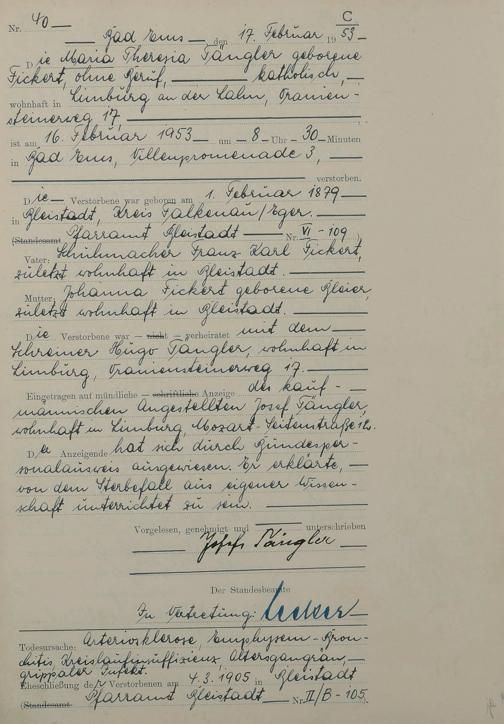 C
Nr. 40
Bad Ems den 17. Februar 1953
Die Maria Theresia Tängler geborene
Fickert, ohne Beruf, katholisch,
wohnhaft in Limburg an der Lahn, Tranien-
steinerweg 17,
ist am 16. Februar 1953 um 8 Uhr 30 Minuten
in Bad Ems, Villenpromenade 3,
verstorben.
Die Verstorbene war geboren am 1. Februar 1879
in Bleistadt, Kreis Falkenau/Eger.
(Standesamt Pfarramt Bleistadt Nr. VI-109)
Vater: Schuhmacher Franz Karl Fickert,
zuletzt wohnhaft in Bleistadt.
Mutter: Johanna Fickert geborene Bleier,
zuletzt wohnhaft in Bleistadt.
Die Verstorbene war — nicht — verheiratet mit dem
Schreiner Hugo Tängler, wohnhaft in
Limburg, Traniensteinerweg 17.
Eingetragen auf mündliche — schriftliche Anzeige des kauf-
männischen Angestellten Josef Tängler,
wohnhaft in Limburg, Mozart-Seitenstraße
Der Anzeigende hat sich durch Bundesper-
sonalausweis ausgewiesen. Er erklärte,
von dem Sterbefall aus eigener Wissen-
schaft unterrichtet zu sein.
Vorgelesen, genehmigt und unterschrieben
Josef Tängler
Der Standesbeamte
In Vertretung:
Todesursache: Arteriosklerose, Emphysem-Bron-
chitis, Kreislaufinsuffizienz, Altersgangrän,
grippaler Infekt.
Eheschließung der Verstorbenen am 4.3.1905 in Bleistadt
(Standesamt Pfarramt Bleistadt Nr. II/B-105.